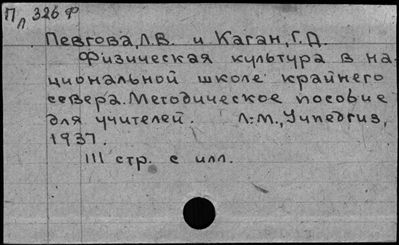 Пл 326 Ф
Певгова, Л.В. и Каган, Г.Д.
Физическая культура в на-
циональной школе крайнего
севера. Методическое пособие
для учителей. Л.-М., Учпедгиз,
1937.
111 стр. с илл.